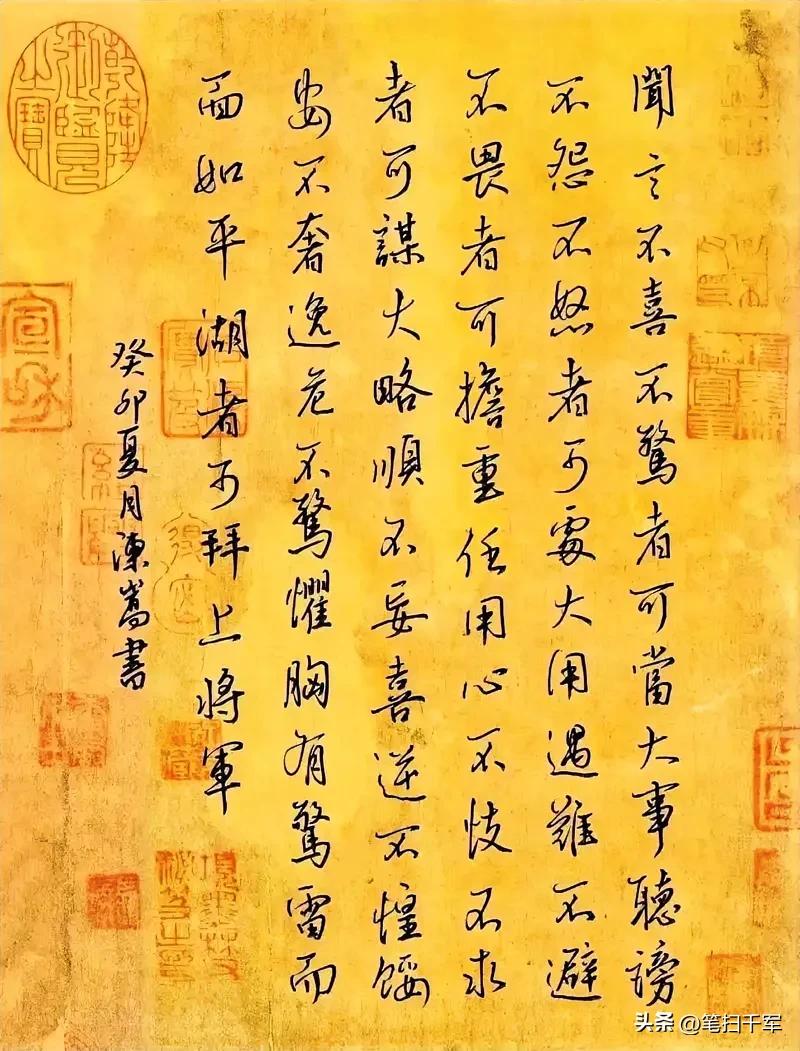 聞言不喜不驚者可當大事聽謗
不怨不怒者可處大用遇難不避
不畏者可擔重任用心不忮不求
者可謀大略順不妄喜逆不惶餒
安不奢逸危不驚懼胸有驚雷而
面如平湖者可拜上將軍
癸卯夏月陳嵩書
乾隆御覽之寶
头条 @笔扫千军